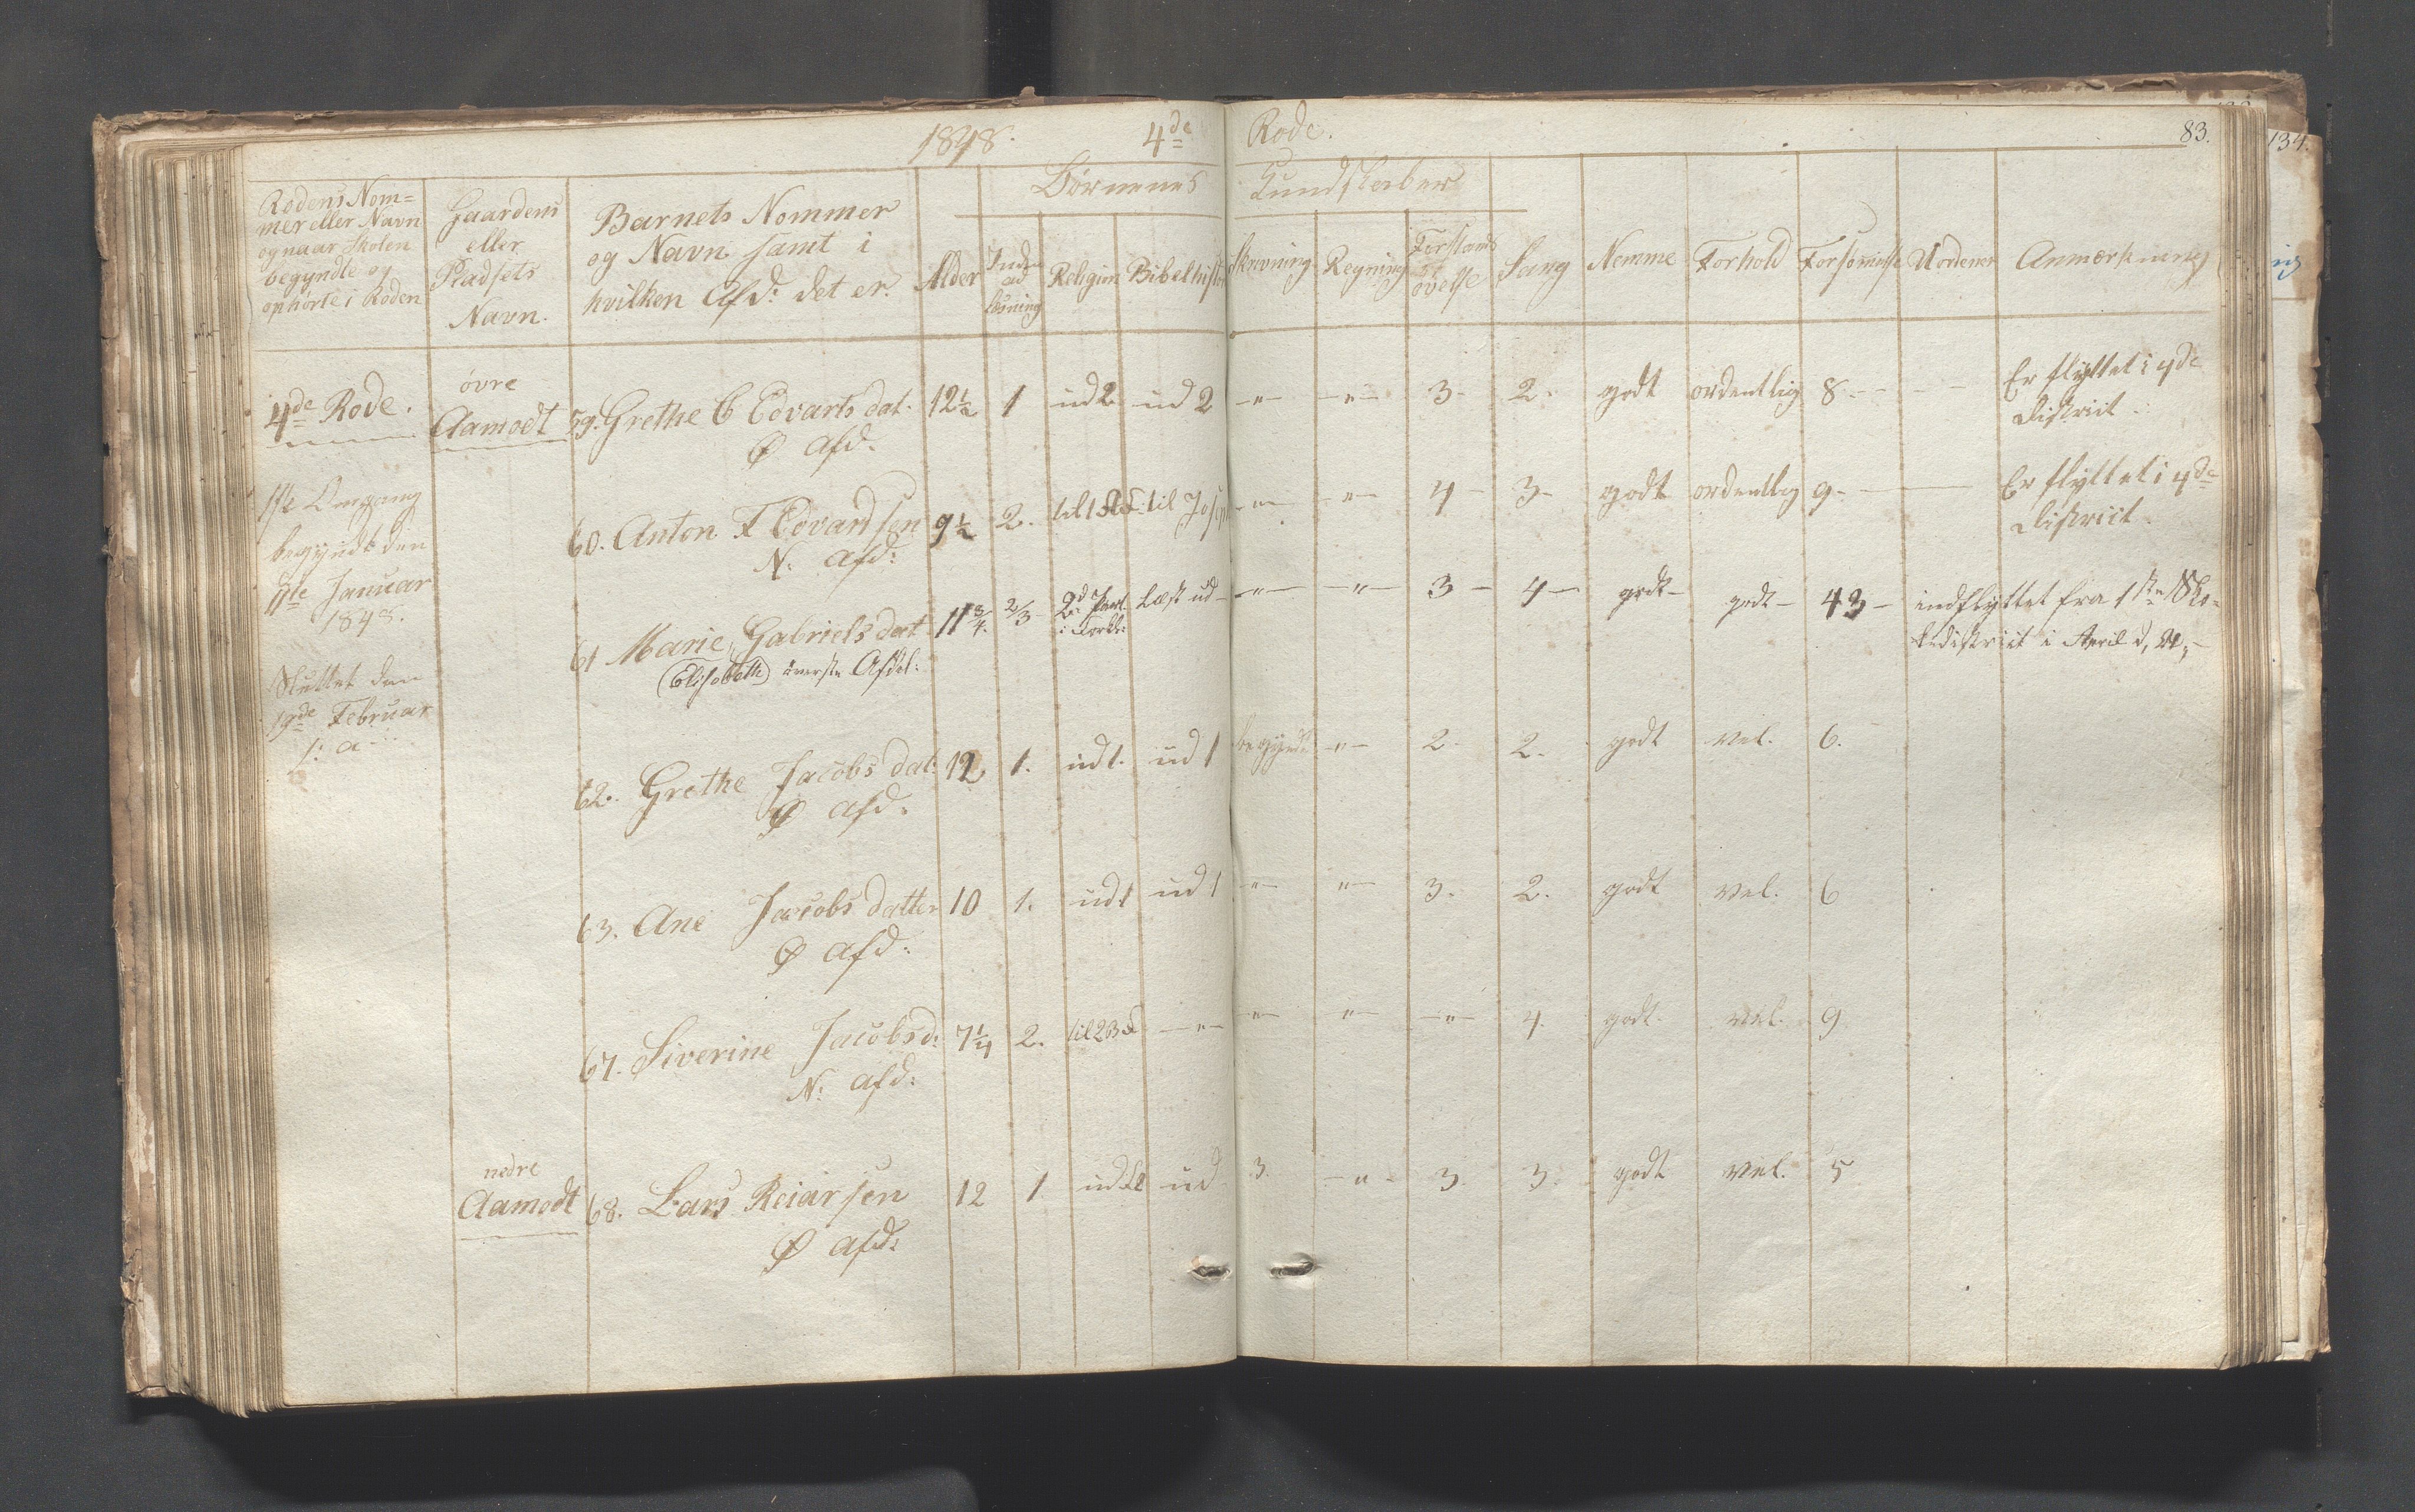 1848. 4de Rode. 83.
134.
Børnenes Kundskaber
Rodens Nom=
mer eller Navn
og naar Skolen
begyndte og
ophørte i Roden
Gaardens
eller
Pladsets
Navn.
Barnets Nommer
og Navn samt i
hvilken Afd: det er.
Alder
Religion
Bibelhist
Skrivning
Regning
Forstands
øvelse
Sang
Nemme
Forhold
Forsømmelse
Uordener
Anmærkning
4de Rode.
øvre
Aamodt 59. Grethe C Edvarts dat. 12½ 1 ud 2 ud 2 -"- -"- 3- 2. godt ordentlig 8. Er flyttet i 4de
District.
Ø Afd.
1ste Omgang
begyndt den
11te Januar
1848.
60. Anton F Edvardsen 9½ 2. til Josep -"- -"- 4- 3- godt ordentlig 9. Er flyttet i 4de
District.
N. afd:
61 Marie, Gabriels dat 11¾. 2/3- 2d Part læst ud -"- -"- 3- 4- godt- godt- 43- indflyttet fra 1ste Sko-
i Forkl: ledistrict i April d, A,-
(Elisabeth) øverste Afdel:
Sluttet den
19de Februar
s: a.
62. Grethe Jacobs dat. 12 1. ud 1. ud 1 begyndt -"- 2. 2. godt vel. 6.
Ø afd.
63. Ane Jacobs datter 10 1. ud 1 ud 1 -"- "- 3. 2. godt vel. 6
Ø afd:
67. Siverine Jacobsd: 7¼ 2. -"- -"- "- -"- 4. godt. vel. 9
N: afd:
nedre
Aamodt 68. Lars Reiarsen 12 1 ud 3. -"- 3. 3. godt vel. 5
Ø afd: